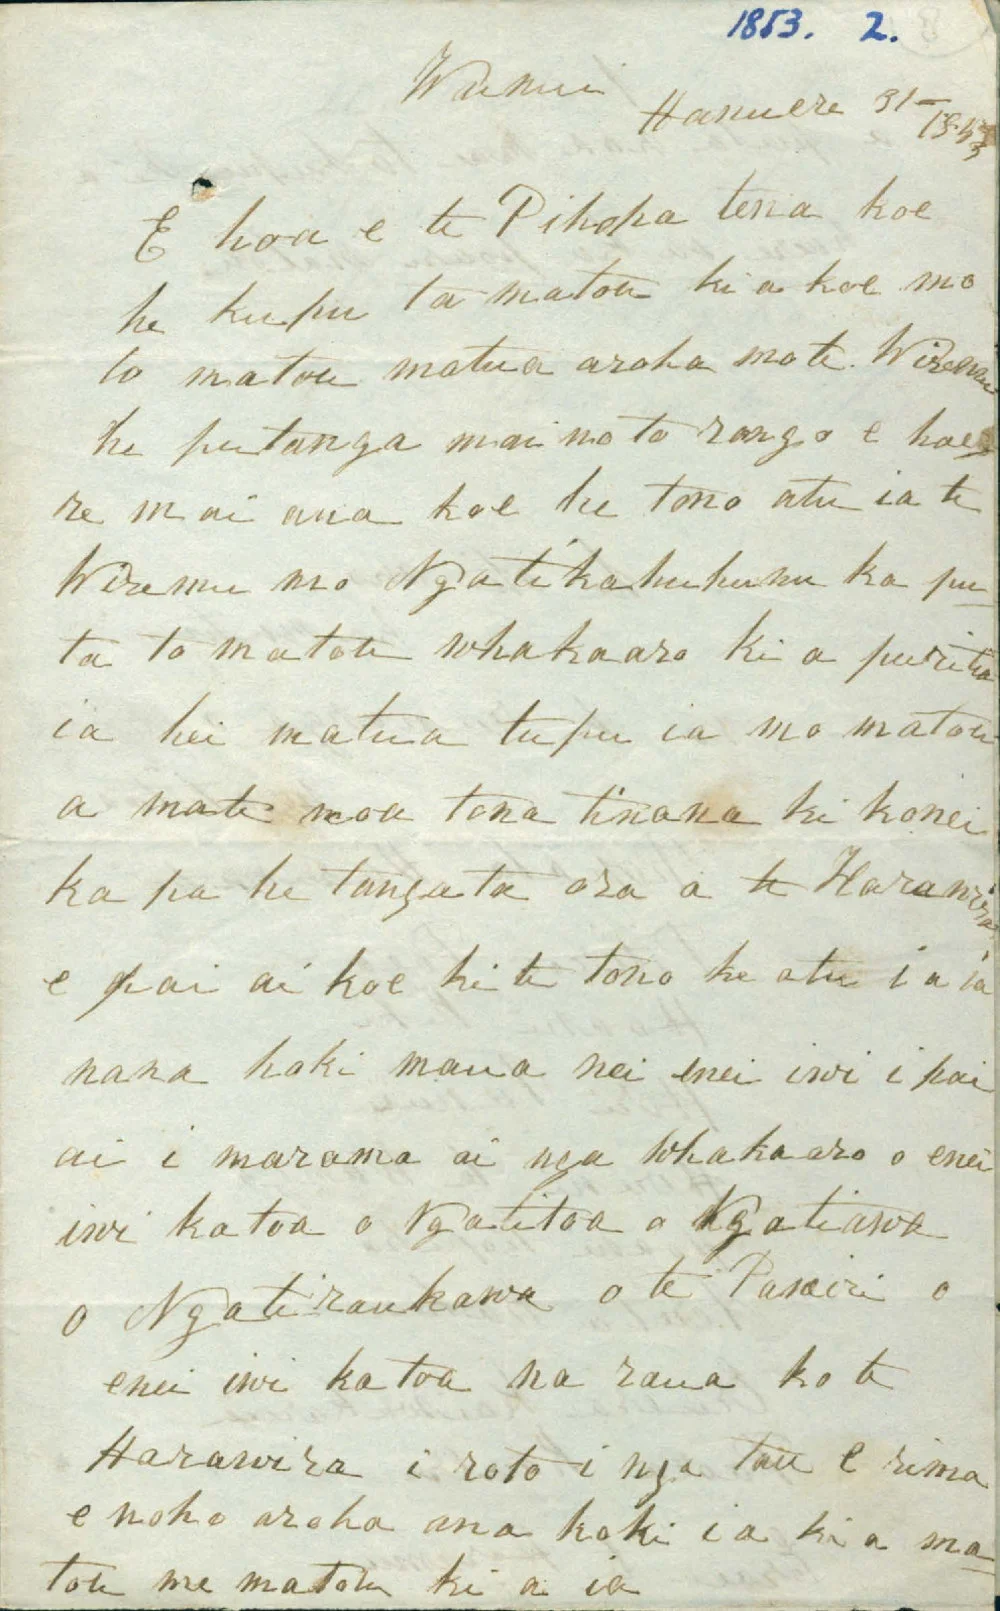 1853. 2.
Hanuere 31 -
1853
E hoa e te Pihopa tena koe
he kupu ta matou ki a koe mo
to matou matua aroha mo te Wiremu
he putanga mai no to rongo e hae
re mai ana koe he tono atu ia te
Wiremu mo Ngatikahuhunu ka pu
ta to matou whakaaro ki a puritia
ia hei matua tupu ia mo matou
a mate noa tona tinana ki konei
ka pa he tangata ora a te Harawira
e pai ai koe ki te tono ke atu i a ia
nana hoki maua nei enei iwi i pai
ai i marama ai nga whakaaro o enei
iwi katoa o Ngatitoa o Ngatiawa
o Ngatiraukawa o te
enei iwi katoa na raua ko te
Harawira i roto i nga tau e rima
e noho aroha ana koki ia ki a ma-
tou me matou ki a ia